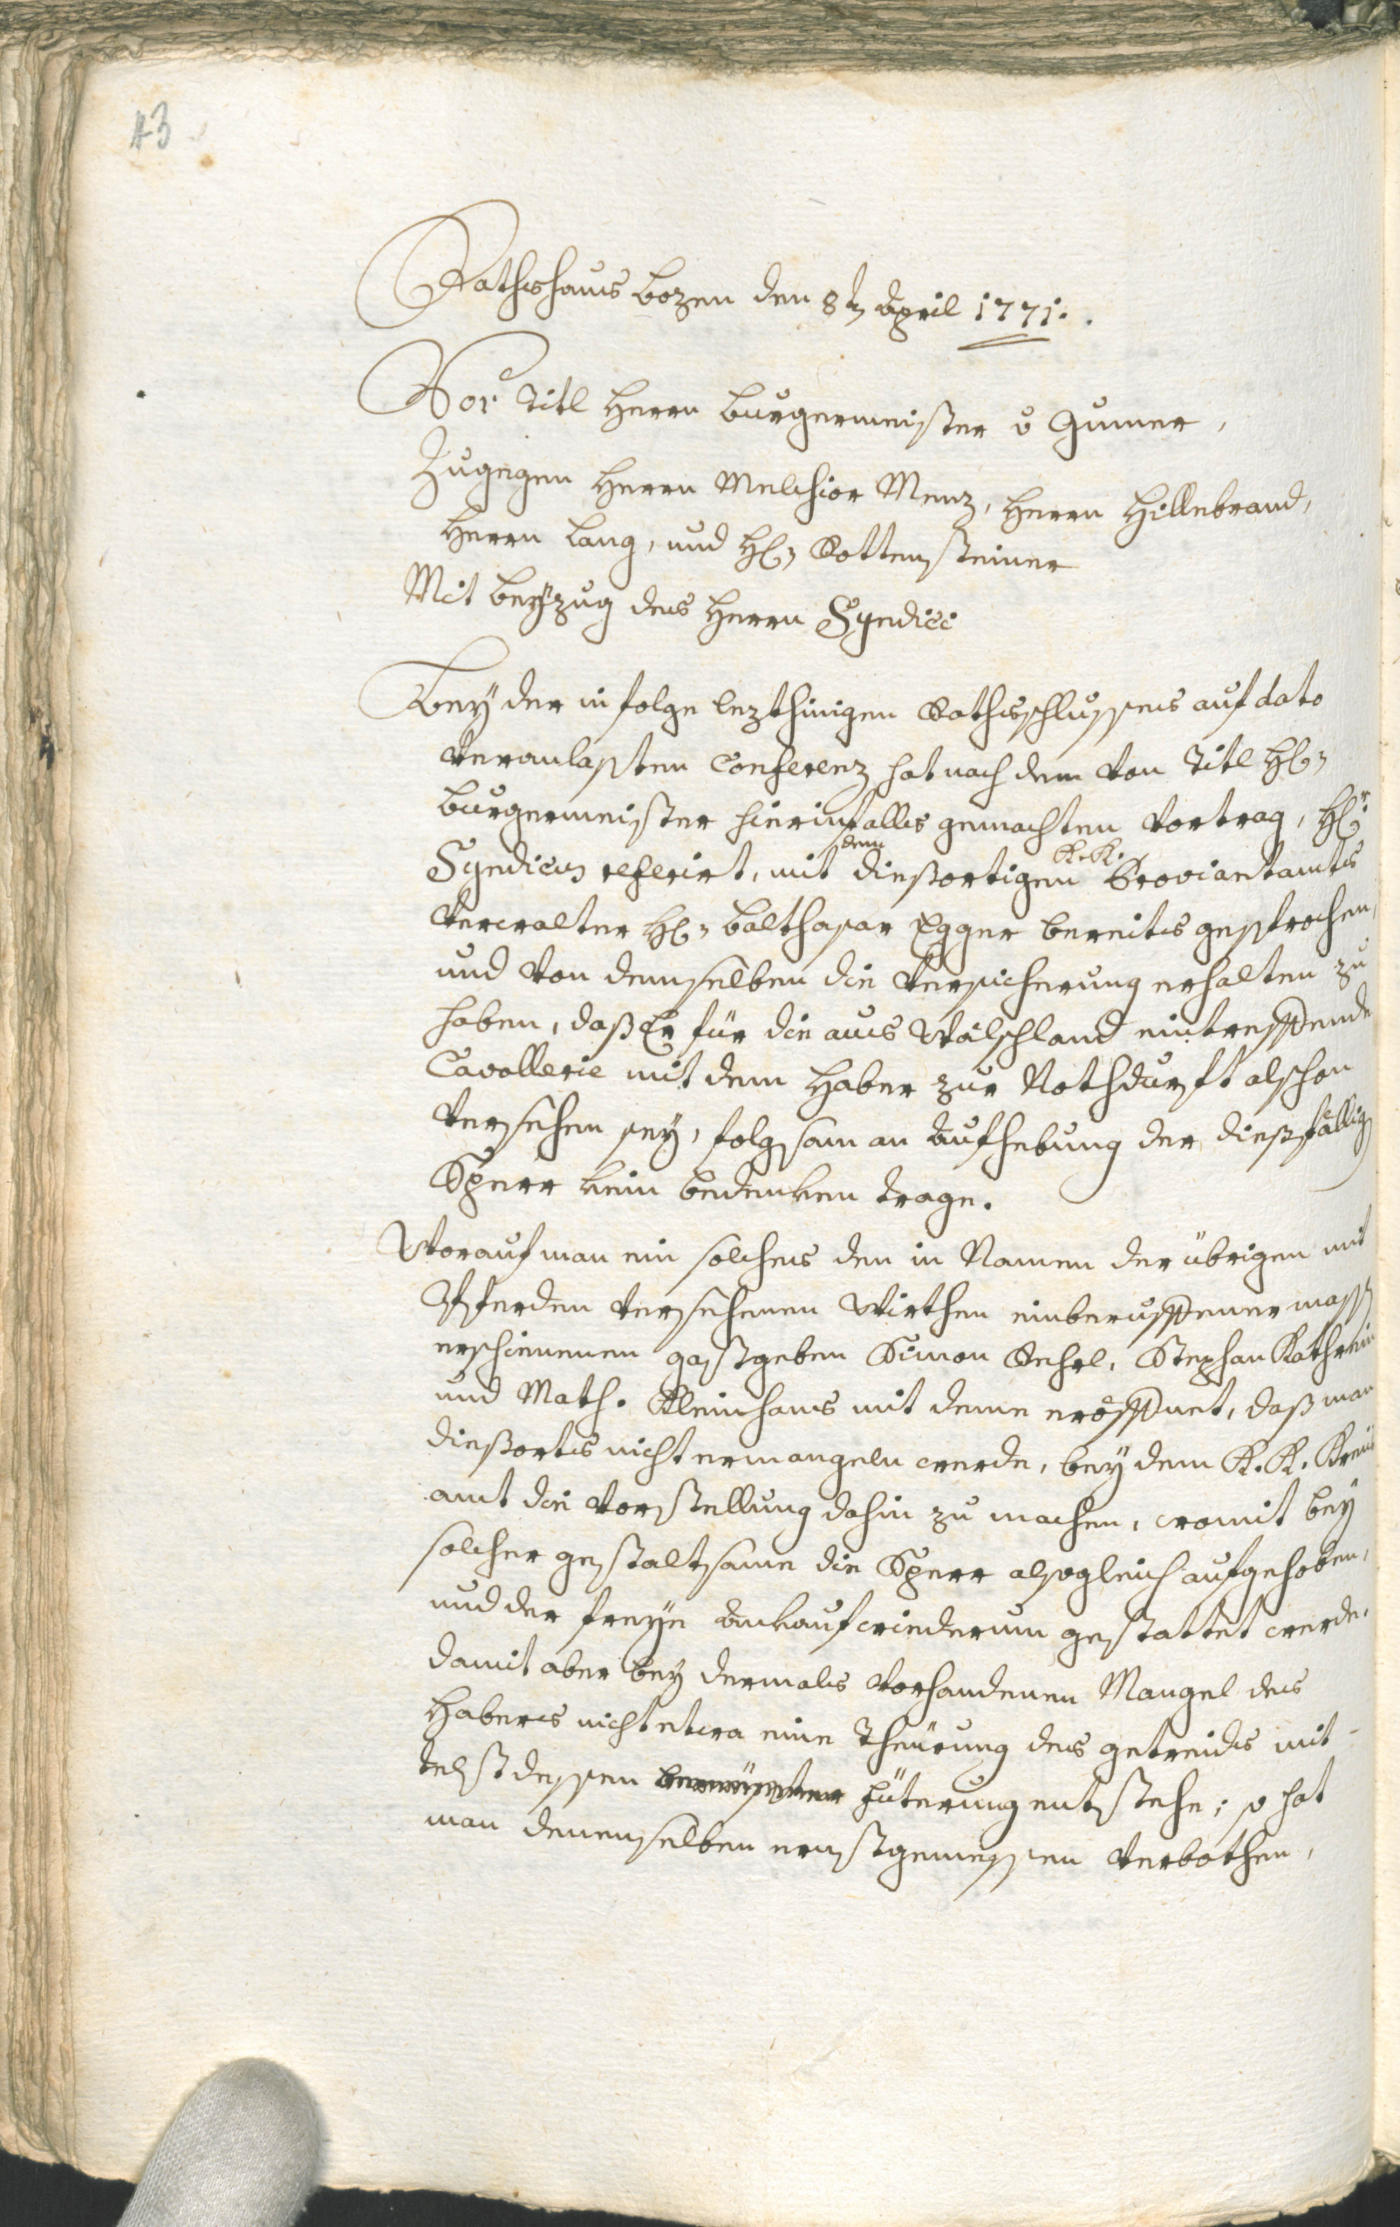 43
Rathshaus Bozen den 8tn April 1771.
Vor Titl Herrn Burgermeister v Gumer,
Zugegen Herrn Melchior Menz, Herrn Hillebrand,
Herrn Lang, und H: Rottensteiner
Mit Beyzug des Herrn Syndici
Bey der in folge lezthinigen Rathsschlusses auf dato
veranlasten Conferenz hat nach dem von Titl H:
Burgermeister hierinfalls gemachten Vortrag, Hr:
dem K. K.
Syndicus referirt, mit dießortigen Proviantamts
Verwalter H: Balthasar Egger bereits gesprochen,
und von demselben die Versicherung erhalten zu
haben, daß Er für die aus Wälschland eintreffende
Cavallerie mit dem Haber zur Nothdurft alschon
versehen sey, folgsam an Aufhebung der dießfällig
Sperr kein bedenken trage.
Worauf man ein solches den in Namen der übrigen mit
Pferden versehenen Wirthen einberuffener mass
erschienenen gastgeben Simon Sehrl, Stephan Kathrein
und Math. Kleinhans mit deme eröffnet, daß man
dießorts nicht ermangeln werde, bey dem K. K. Kreis
amt die Vorstellung dahin zu machen, womit bey
solcher gestaltsame die Sperr alsogleich aufgehoben,
und der freye Ankauf wiederum gestattet werde.
damit aber bey dermals vorhandenen Mangel des
Habers nicht etwa eine Theürung des getreids mit-
telst dessen füterung entstehe; so hat
man denenselben ernstgemessen verbothen,